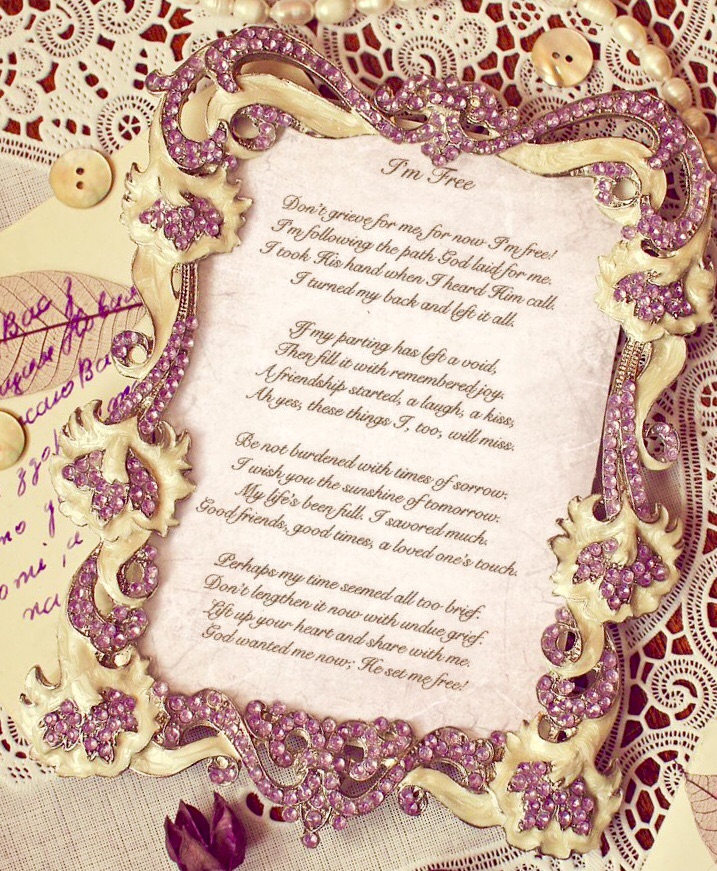 I'm Free
Don't grieve for me, for now I'm free!
I'm following the path God laid for me.
I took His hand when I heard Him call.
I turned my back and left it all.
If my parting has left a void,
Then fill it with remembered joy.
A friendship started, a laugh, a kiss,
Ah yes, these things I, too, will miss.
Be not burdened with times of sorrow.
I wish you the sunshine of tomorrow.
My life's been full. I savored much.
Good friends, good times, a loved one's touch.
Perhaps my time seemed all too brief.
Don't lengthen it now with undue grief.
Lift up your heart and share with me.
God wanted me now; He set me free!
Вас